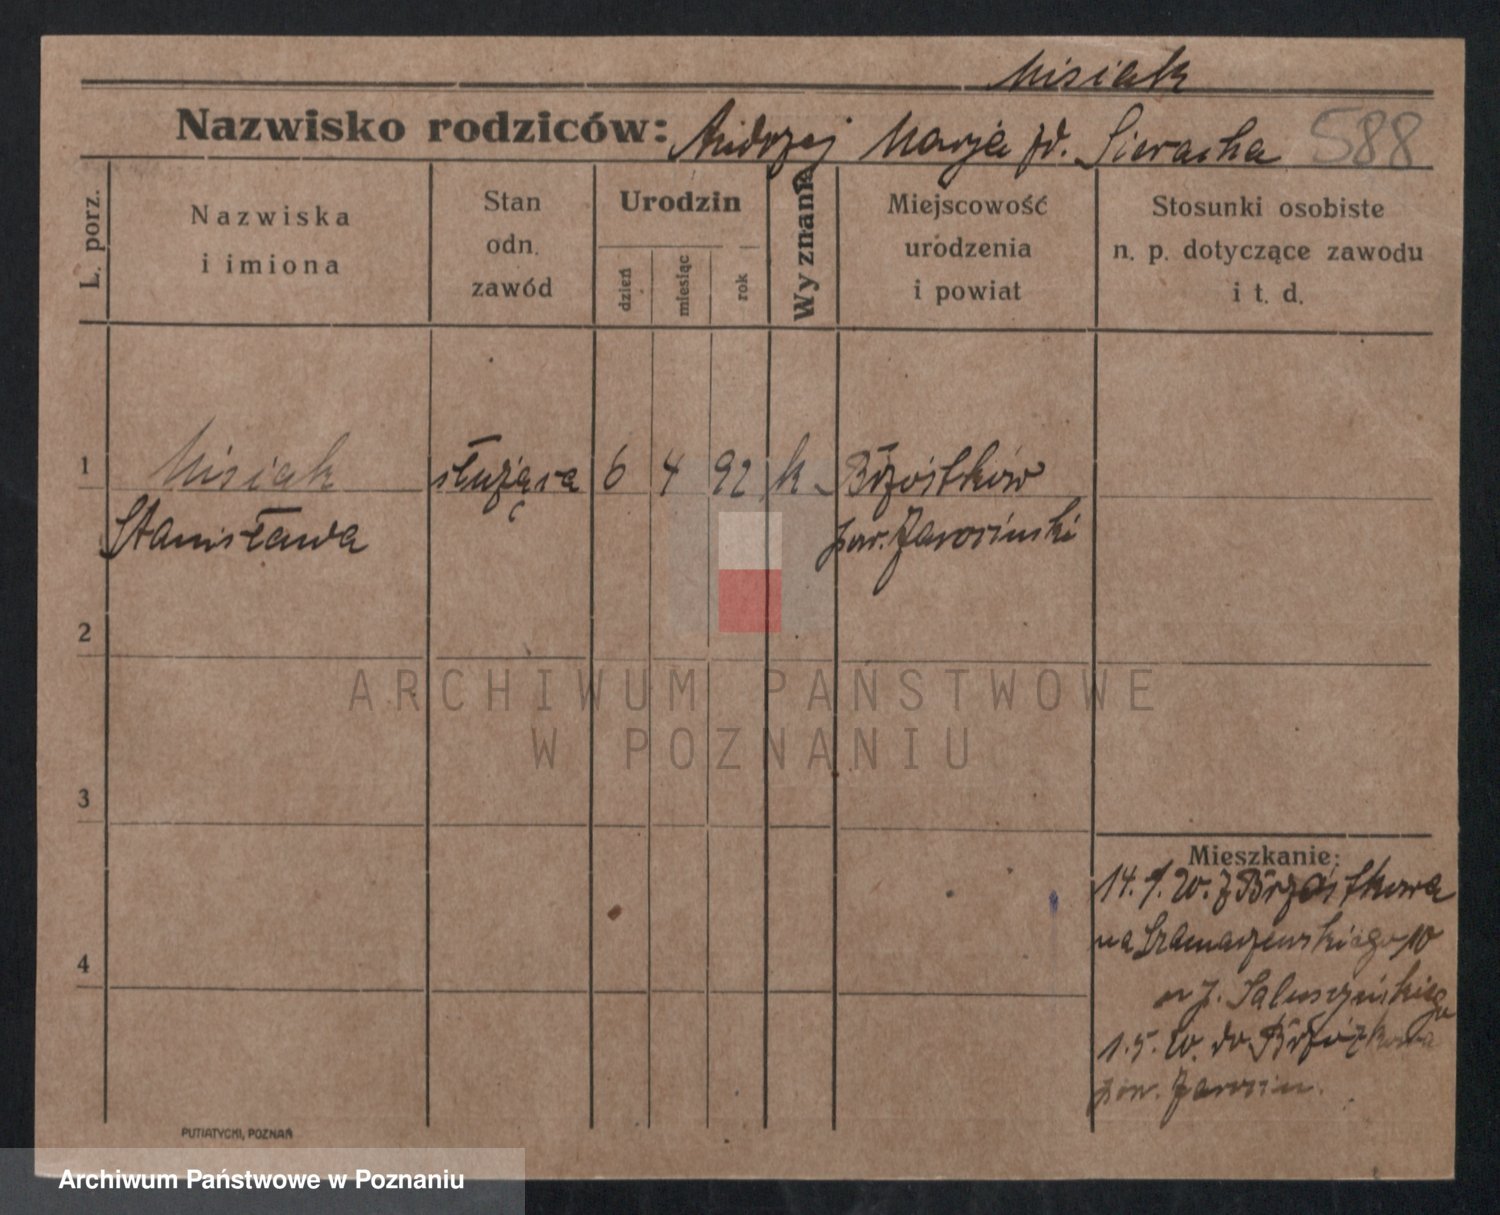 Misiak
Nazwisko rodziców: Andrzej Marja zd. Sieracka 588
L. porz.
Nazwiska i imiona
Stan odn. zawód
Urodzin
dzień miesiąc rok
Wyznanie
Miejscowość urodzenia i powiat
Stosunki osobiste n. p. dotyczące zawodu i t. d.
1 Misiak służąca 6 4 92 k. Brzostków
Stanisława pow. Jarociński
2
ARCHIWUM PAŃSTWOWE
W POZNANIU
3
Mieszkanie:
14. 20. z Brzostkowa
na 10
4
J.
1.5. 20. do
pow. Jarocin.
PUTIATYCKI, POZNAŃ
Archiwum Państwowe w Poznaniu